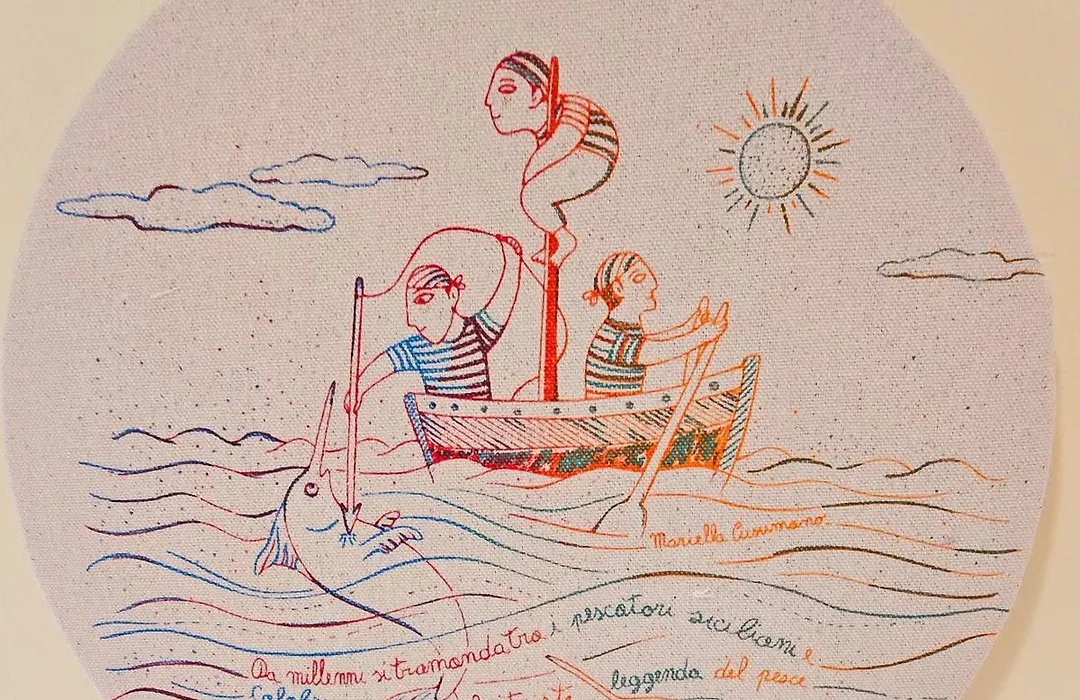 Mariella Cummano
Da millenni si tramanda tra i pescatori siciliani e
leggenda del pesce